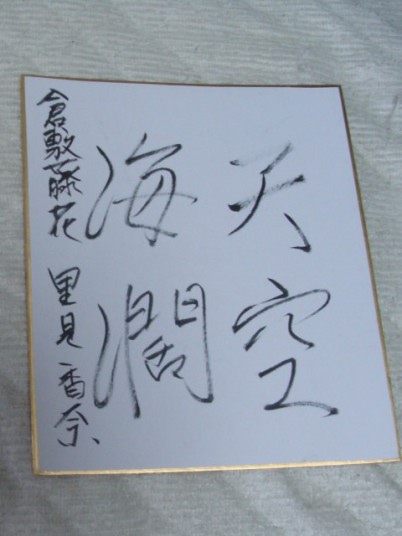 天空
海濶
倉敷藤花 里見香奈